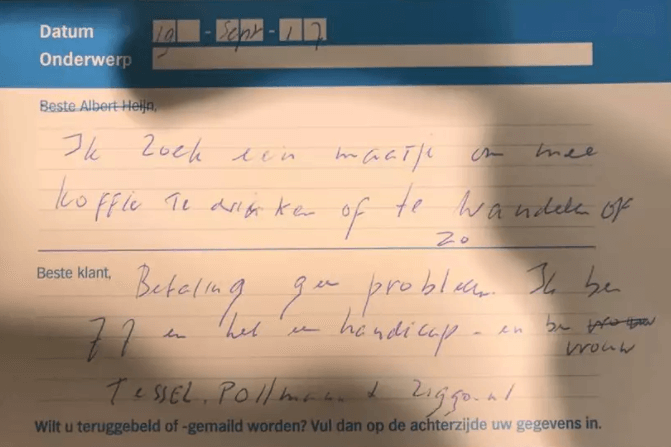 Datum 19 - Sept - 17
Onderwerp
Beste Albert Heijn,
Ik zoek een maatje om mee
koffie te drinken of te wandelen of
zo
Beste klant, Betaling geen probleem. Ik ben
77 en heb een handicap - en ben vrouw
vrouw
Tessel.Pollmann
Wilt u teruggebeld of -gemaild worden? Vul dan op de achterzijde uw gegevens in.